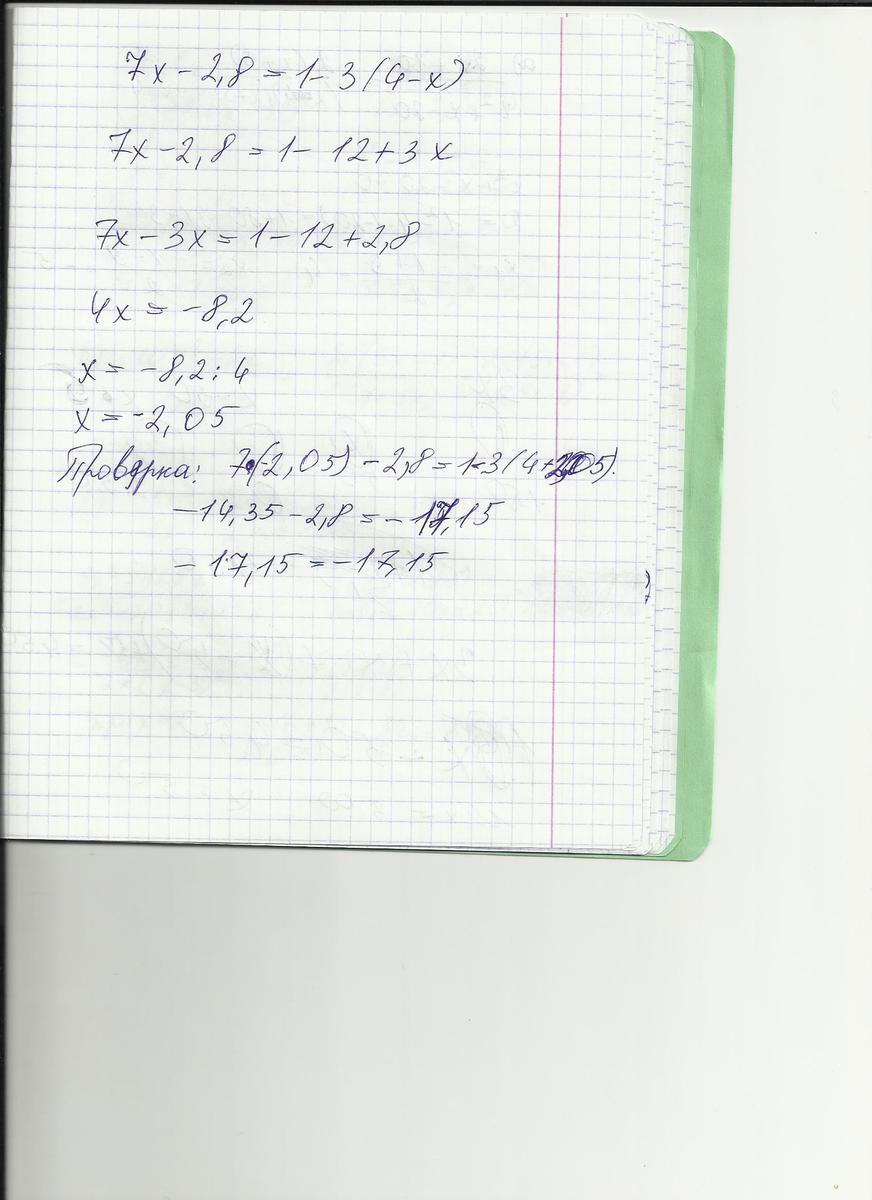 7x - 2,8 = 1 - 3(4-x)
7x - 2,8 = 1 - 12 + 3x
7x - 3x = 1 - 12 + 2,8
4x = -8,2
x = -8,2 : 4
x = -2,05
Проверка: 7·(-2,05) - 2,8 = 1-3(4+2,05).
-14,35 - 2,8 = -17,15
-17,15 = -17,15